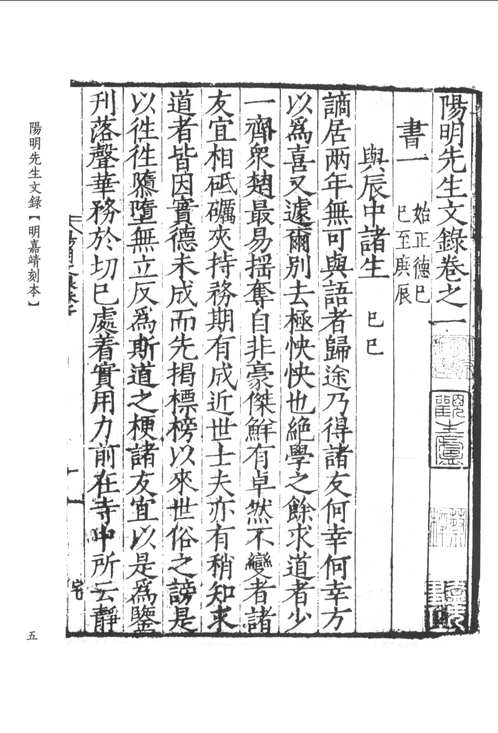 陽明先生文錄卷之一
書一 始正德己
巳至庚辰
與辰中諸生 己巳
謫居兩年無可與語者歸途乃得諸友何幸何幸方
以為喜又遽爾別去極怏怏也絕學之餘求道者少
一齊衆楚最易揺奪自非豪傑鮮有卓然不變者諸
友宜相砥礪夾持務期有成近世士夫亦有稍知求
道者皆因實德未成而先揭標榜以來世俗之謗是
以徃徃隳墮無立反為斯道之梗諸友宜以是為鑒
刋落聲華務於切己處着實用力前在寺中所云静
陽明先生文錄【明嘉靖刻本】
五